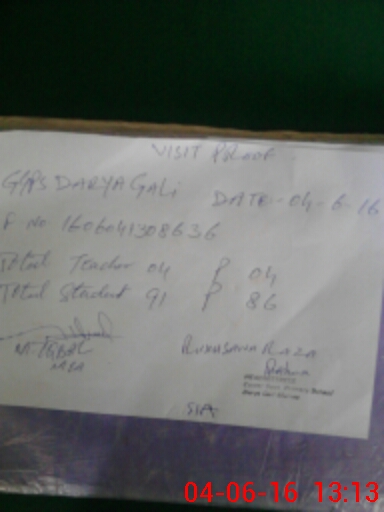 VISIT PROOF
G/GPS DARYA GALI DATE:- 04-6-16
F No 1606041308636
Total Teacher 04 P 04
Total Student 91 P 86
M. IQBAL RUKHSANA RAZA
MEA
HEADMISTRESS
04-06-16 13:13